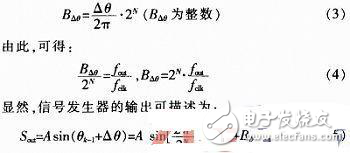 B_{Δθ}=Δθ/2π·2^N (B_{Δθ}为整数) (3)
由此,可得:
B_{Δθ}/2^N=f_{out}/f_{clk},B_{Δθ}=2^N·f_{out}/f_{clk} (4)
显然,信号发生器的输出可描述为:
S_{out}=Asin(θ_{k-1}+Δθ)=A sin[ 5)
电子发烧友